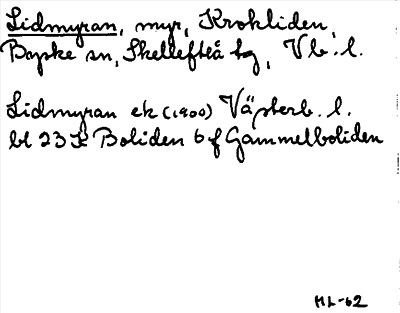 Lidmyran, myr, Krokliden,
Bgske sn, Skellefteå tg, Vb. l.
Lidmyran ek (1900) Västerb. l.
bl 23 K Boliden 6 f Gammelboliden
HL-62